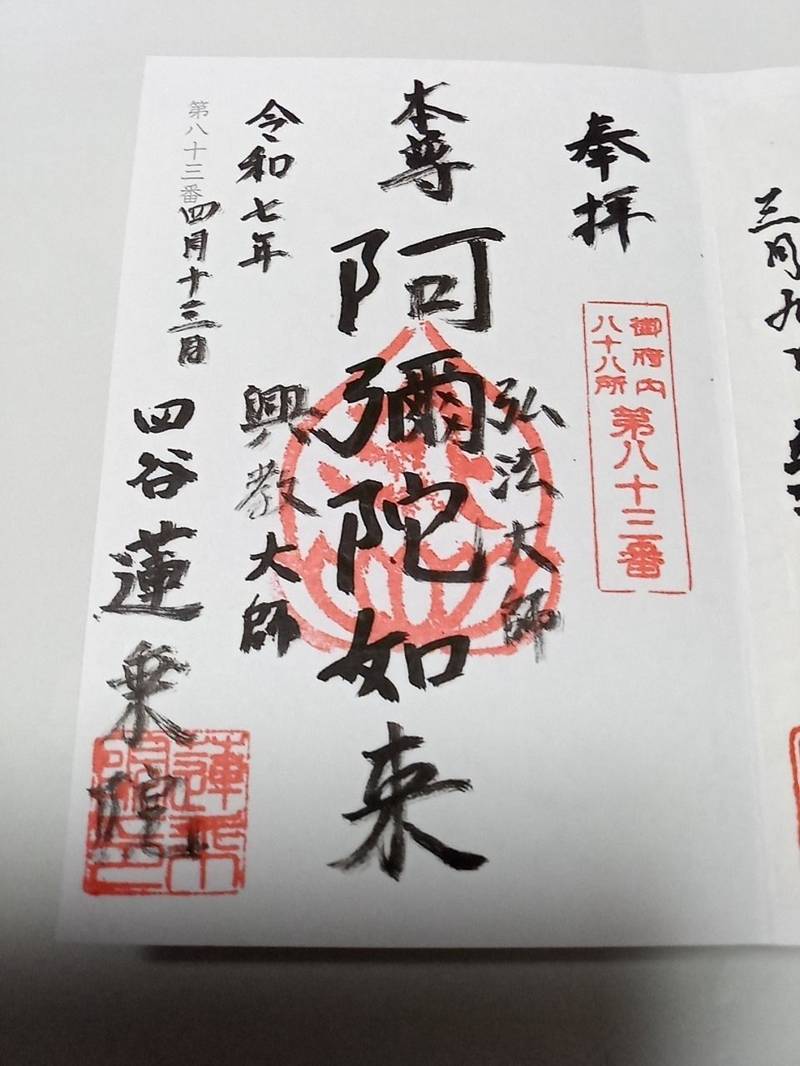 三月九日
奉拝
御府内
八十八所
第八十三番
本尊
阿彌陀如来
弘法大師
興教大師
令和七年
四月十三日
第八十三番
四谷 蓮乗院
蓮乗
院印